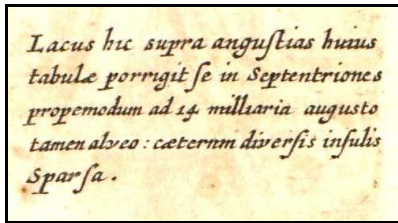 Lacus hic supra anguſtias huius
tabulæ porrigit ſe in Septentriones
propemodum ad 14 milliaria augusto
tamen alveo : cæternm diverſis inſulis
Sparſa .